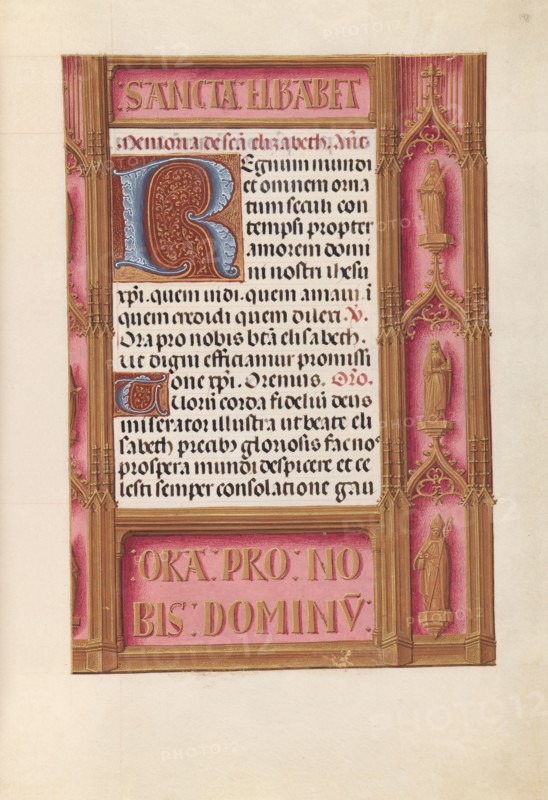 :SANCTA: ELIBABET
Memoria de scā elizabeth. Ants
Regnum mundi
et omnem orna
tum seculi con
tempsi propter
amorem domi
ni nostri ihesu
xpi. quem uidi. quem amaui ī
quem credidi quem dilexi. V.
Ora pro nobis btā elisabeth.
ut digni efficiamur promissi
one xpi. Oremus. Orō.
Tuorū corda fidelíū deus
miserator illustra ut beate eli
sabeth precibꝫ gloriosis fac noˢ
prospera mundi despicere et ce
lesti semper consolatione gau
:ORA: PRO: NO
BIS: DOMINV̄: